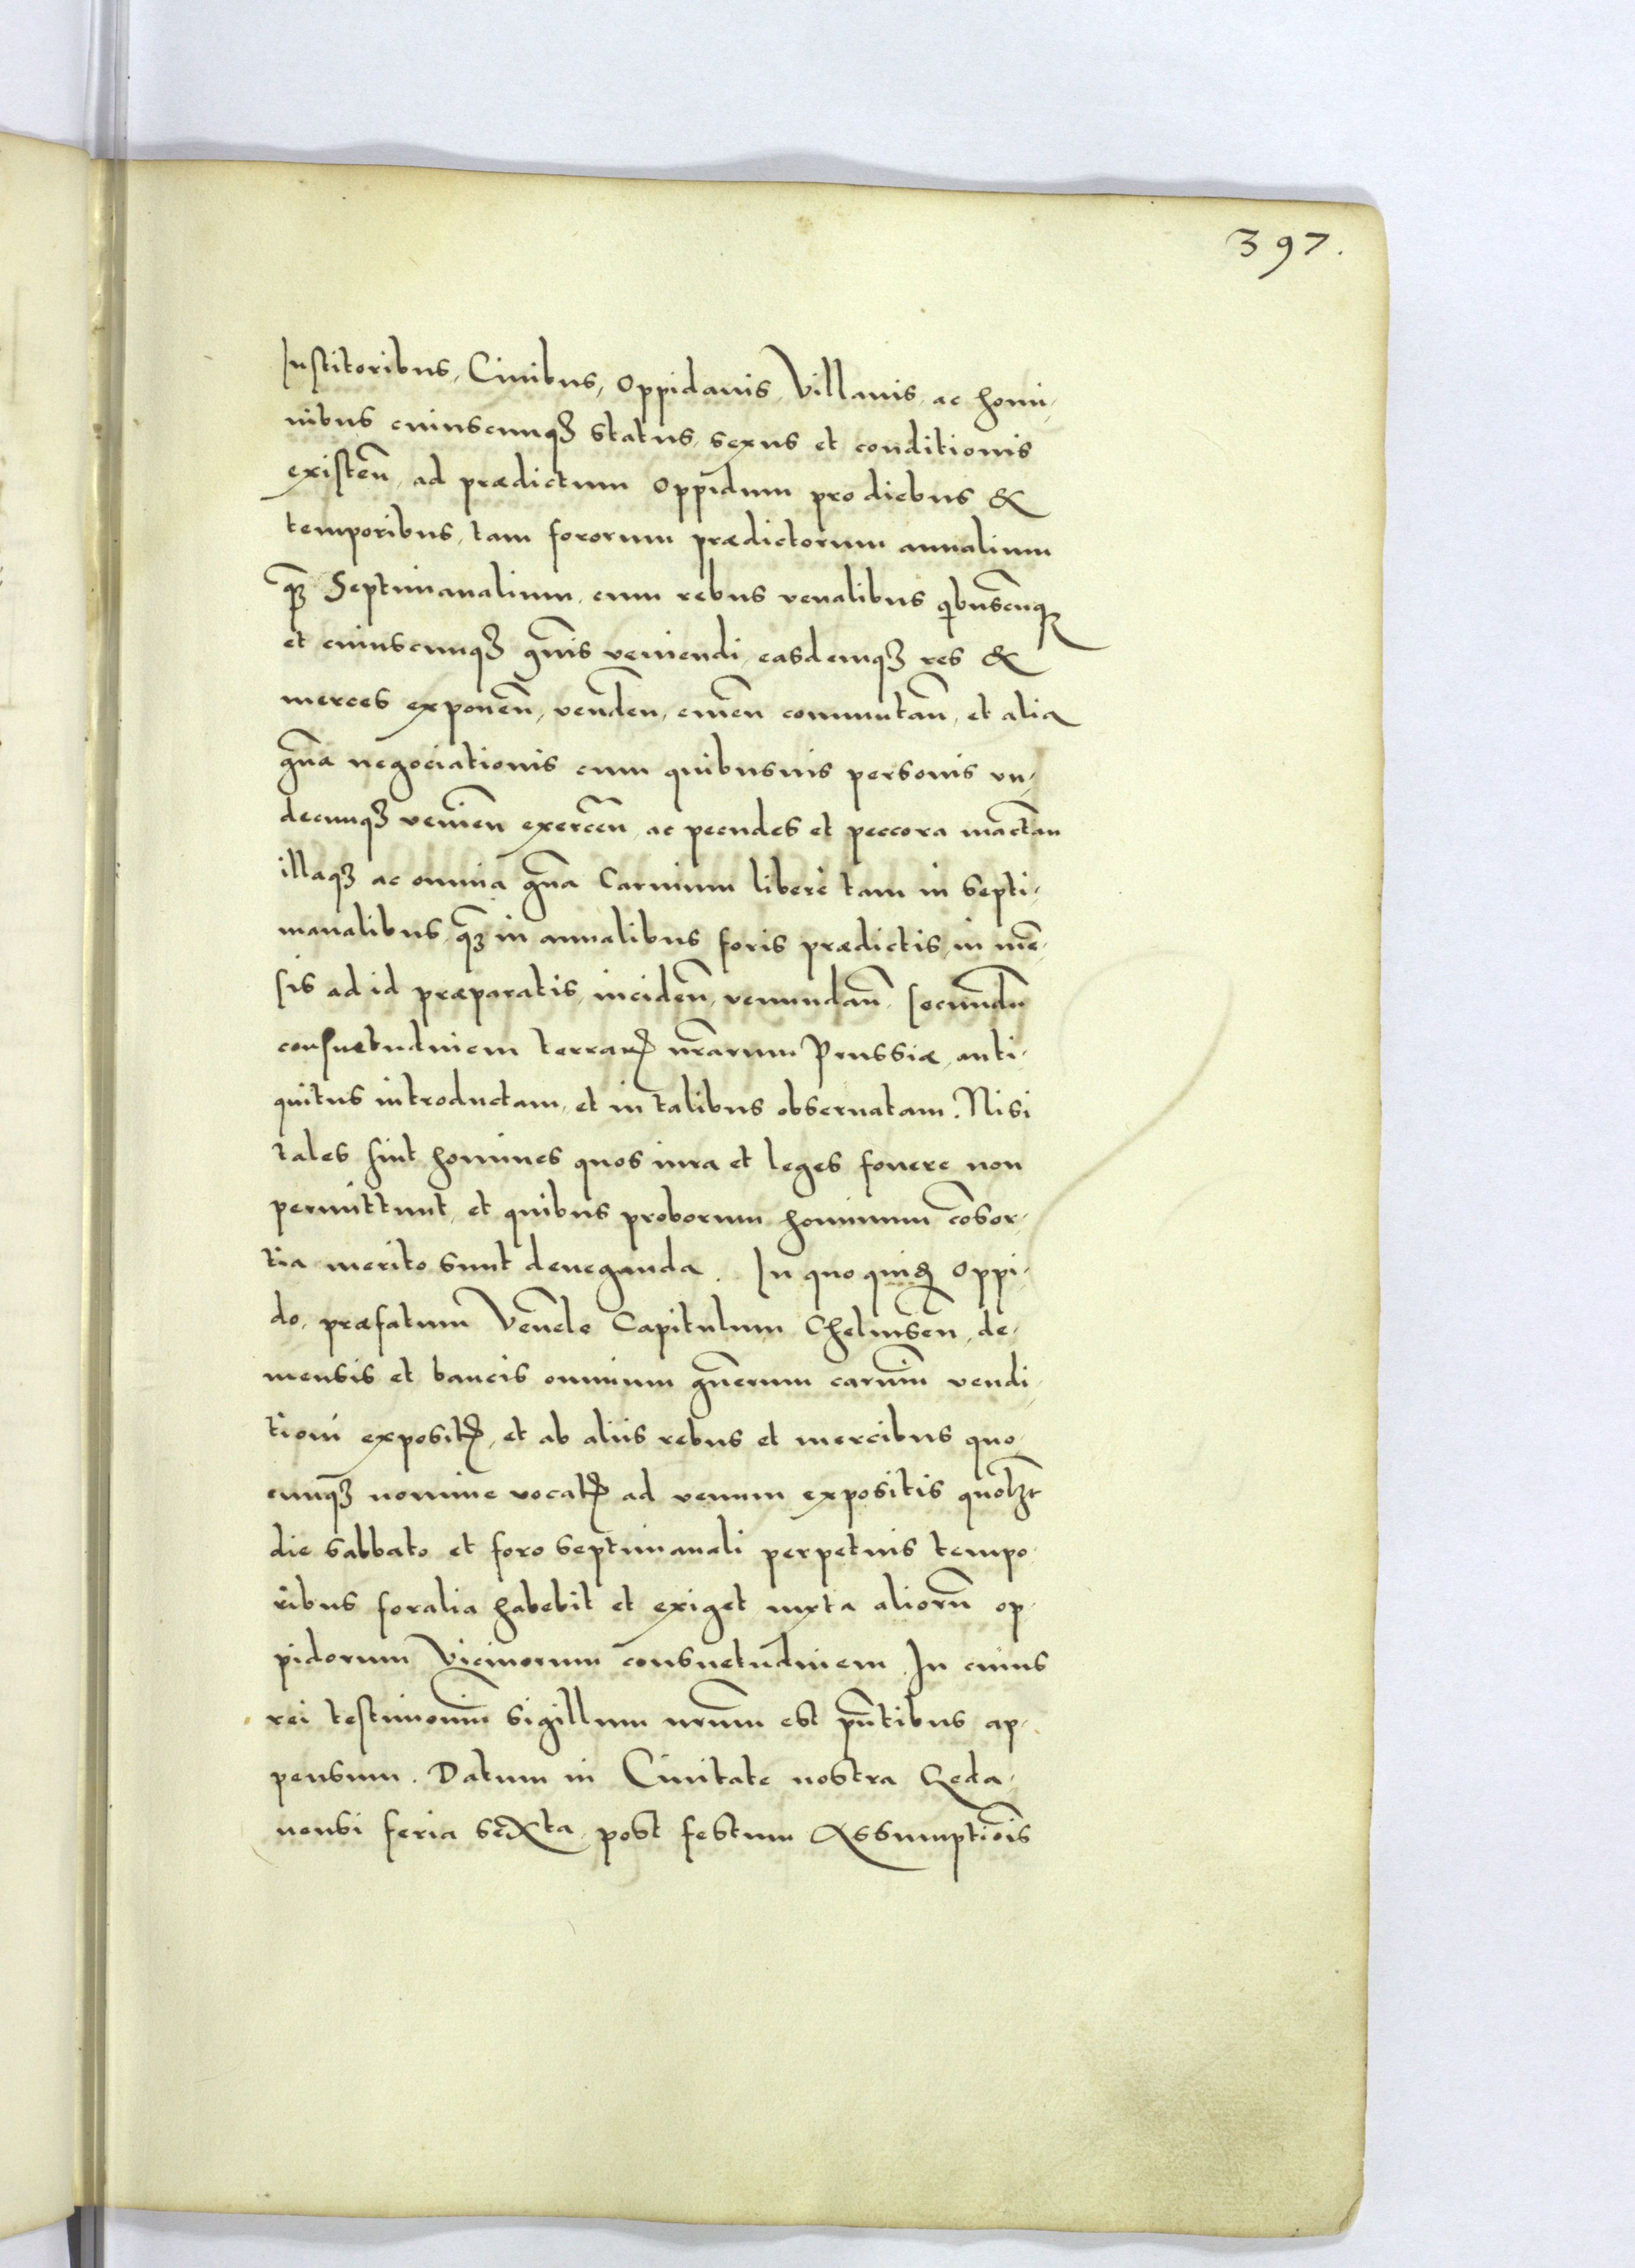 397.
Institoribus, Ciuibus, Oppidanis, Villanis, ac homi,
nibus cuiuscunqꝫ status, sexus et conditionis
existen̄, ad prædictum Oppidum pro diebus &
temporibus, tam fororum prædictorum annalium
qꝫ̄ Septimanalium, cum rebus venalibus qibuscūqꝫ
et cuiuscunqꝫ gn̄is veniendi, easdemqꝫ res &
merces exponen̄, venden̄, emen̄ commutan̄, et alia
gn̄a negociationis cum quibusuis personis vn,
decunqꝫ venien̄ exercen̄, ac pecudes et peccora mactan̄
illaqꝫ ac omnia gn̄a Carnium liberè tam in septi,
manalibus, qꝫ̄ in annalibus foris prædictis, in mē,
sis ad id præparatis, inciden̄, venundan̄, secundū
consuetudinem terraꝝ nr̄arum Prussiæ, anti,
quitus introductam, et in talibus obseruatam. Nisi
tales sint homines quos iura et leges fouere non
permittunt, et quibus proborum hominum cōsor,
tia merito sunt deneganda. In quo quidē Oppi,
do, præfatum Veněle Capitulum Chelmsen̄, de,
mensis et bancis omnium gn̄erum carniū vendi,
tioni expositꝭ, et ab aliis rebus et mercibus quo,
cunqꝫ nomine vocatꝭ ad venum expositis quolꝫt
die sabbato et foro septimanali perpetuis tempo,
ribus foralia habebit et exiget iuxta aliorū op,
pidorum Vicinorum consuetudinem. In cuius
rei testimoniū sigillum nr̄um est pn̄tibus ap,
pensum. Datum in Ciuitate nostra Geda,
nensi feria sexta, post festum Assumptiōis